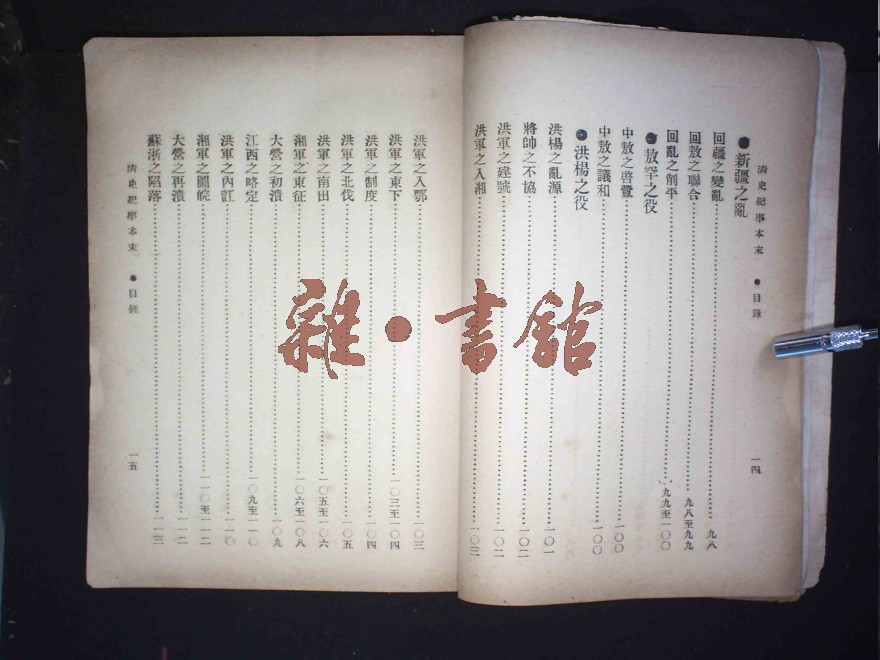 清史紀事本末 ●目錄 一四
●新疆之亂
回疆之變亂……九八
回敖之聯合……九八至九九
回亂之削平……九九至一〇〇
●敖罕之役
中敖之啓釁……一〇〇
中敖之議和……一〇〇
●洪楊之役
洪楊之亂源……一〇一
將帥之不協……一〇二
洪軍之建號……一〇二
洪軍之入湘……一〇三
洪軍之入鄂……一〇三
洪軍之東下……一〇三至一〇四
洪軍之制度……一〇四
洪軍之北伐……一〇五
洪軍之南出……一〇五至一〇六
湘軍之東征……一〇六至一〇八
大營之初潰……一〇九
江西之略定……一〇九至一一〇
洪軍之內訌……一一〇
湘軍之圖皖……一一〇至一一二
大營之再潰……一一二
蘇浙之陷落……一一三
清史紀事本末 ●目錄 一五
雜·書館